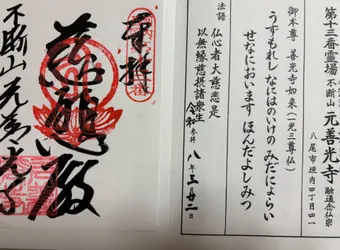 奉拝
慈悲殿
不断山元善光寺
第十三番霊場 不断山 元善光寺 融通念仏宗
八尾市垣内四丁目四一
御本尊 善光寺如来(一光三尊仏)
うずもれし なにはのいけの みだによらい
せなにおいます ほんだよしみつ
法語
仏心者大慈悲是
以無縁慈摂諸衆生
令和 参拝 八年三月廿二日